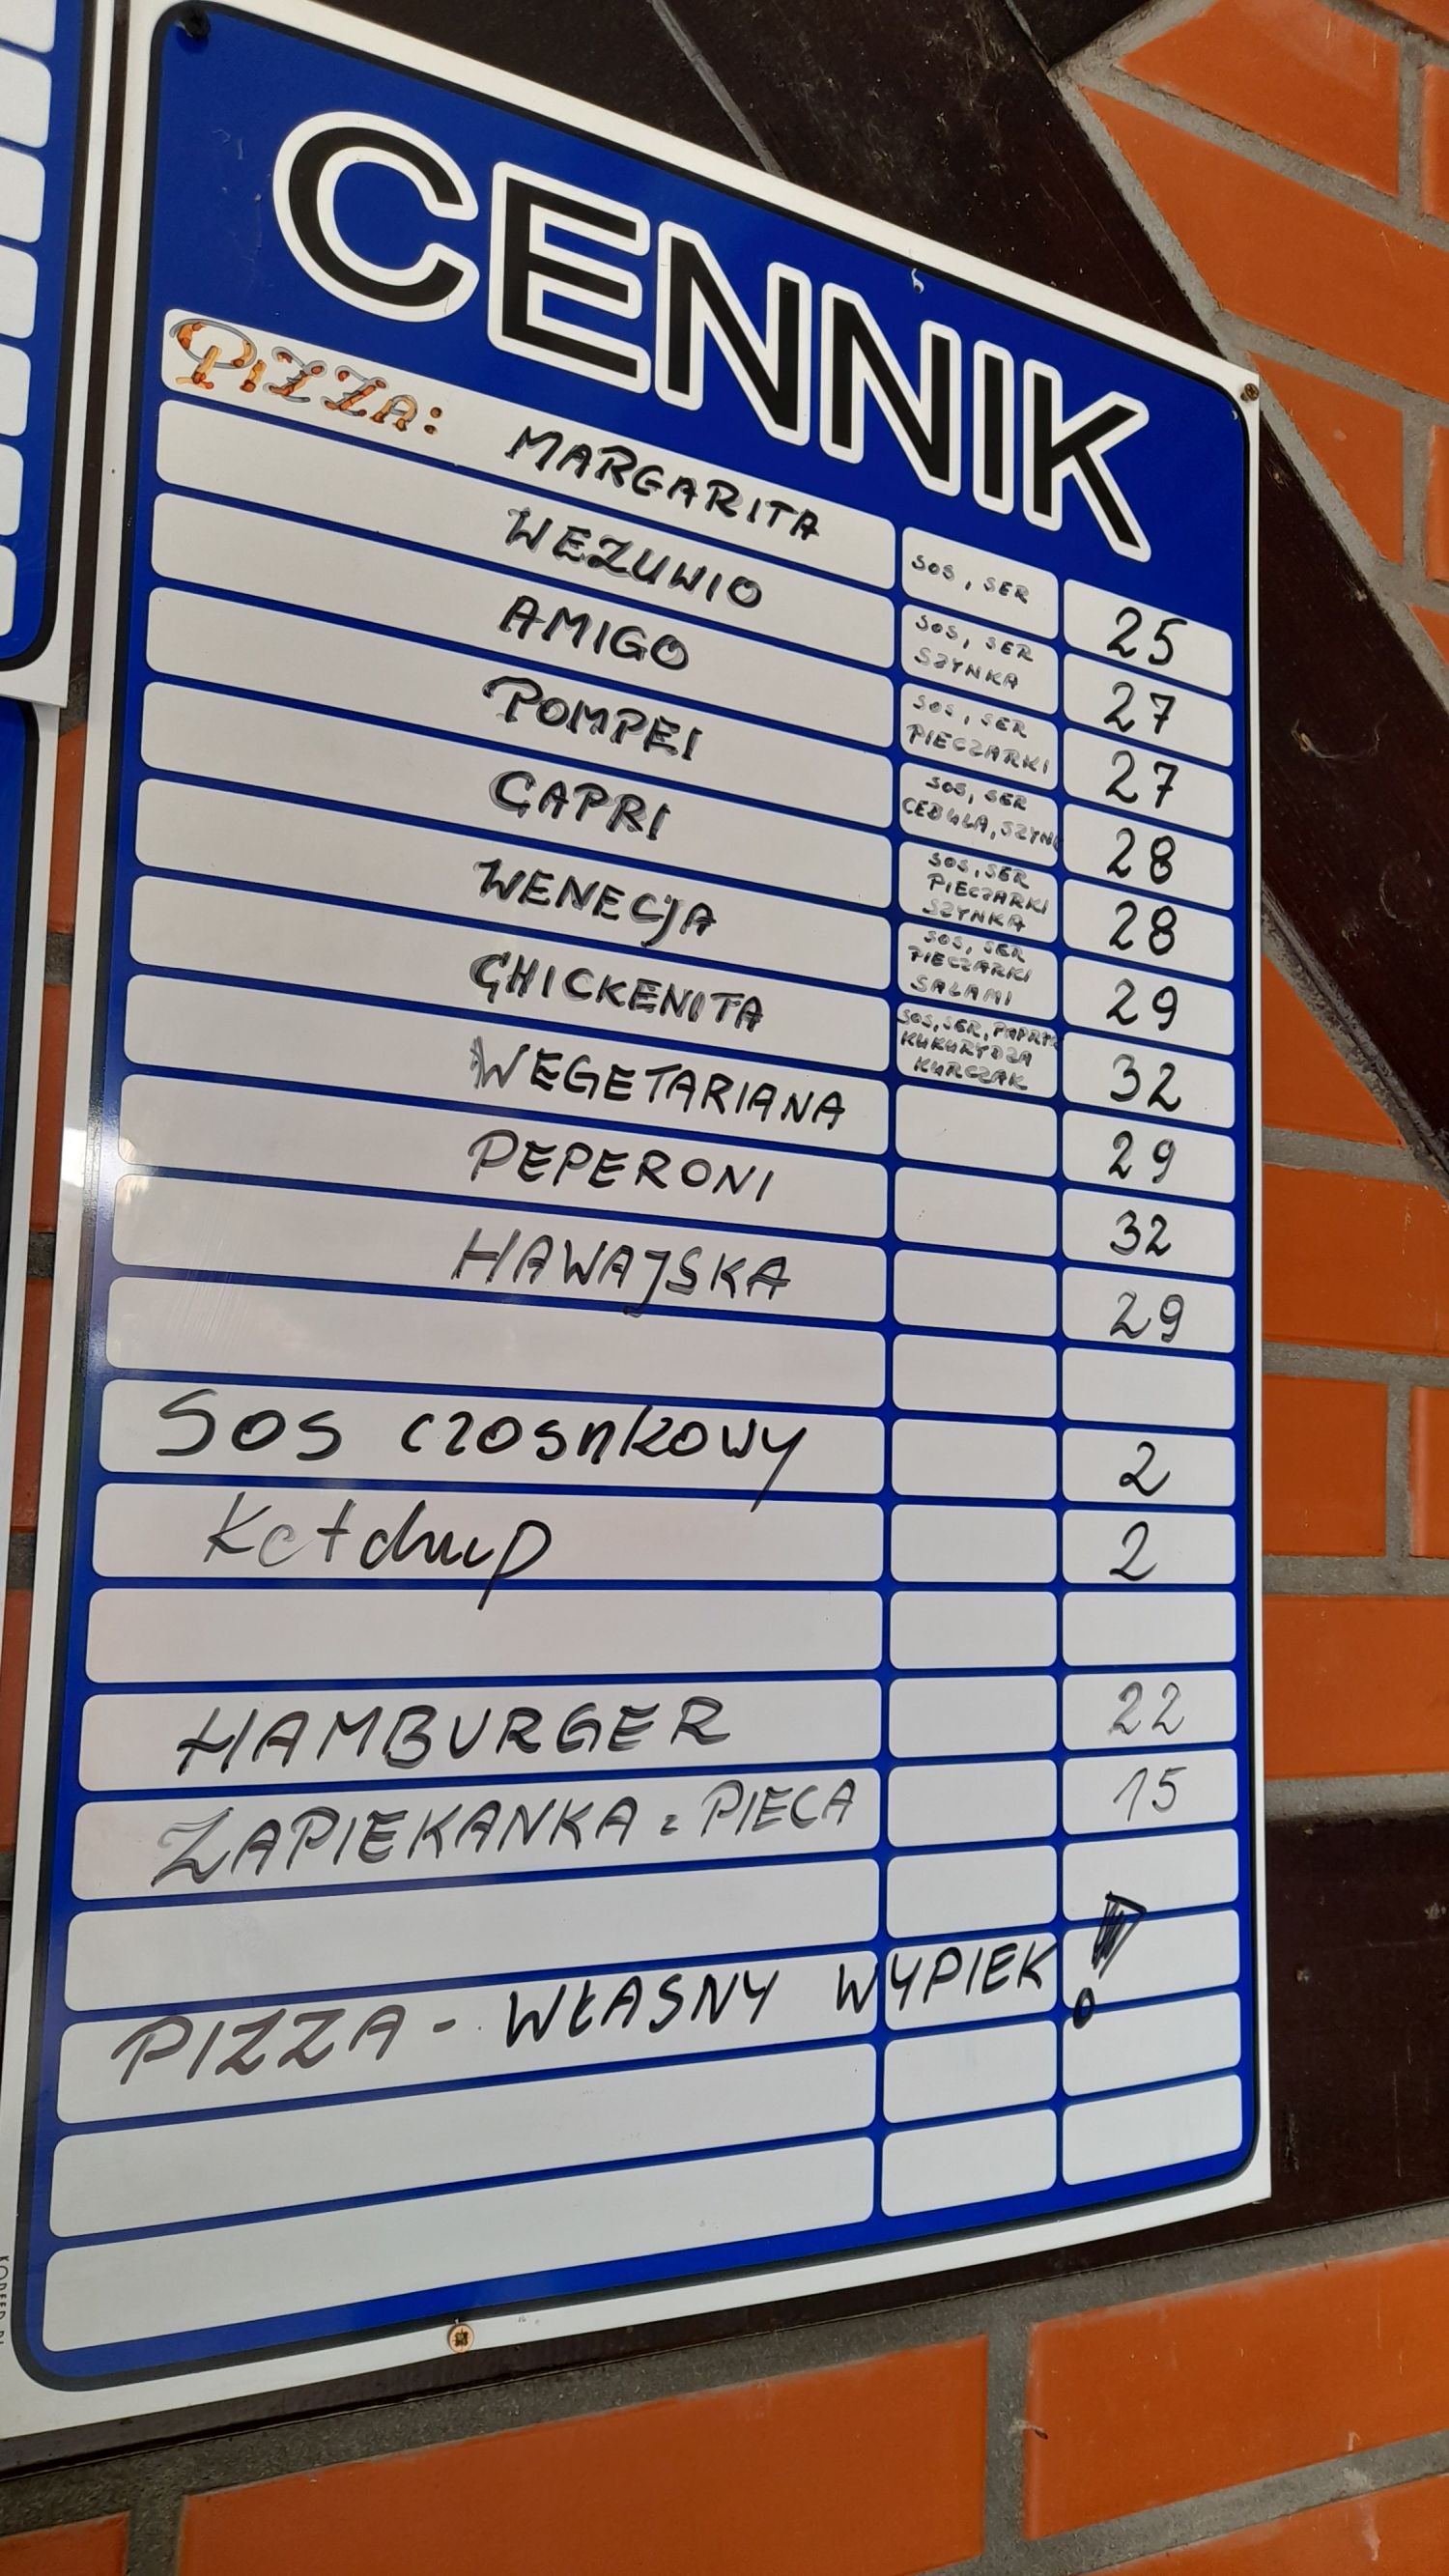 CENNIK
PIZZA: MARGARITA SOS, SER 25
WEZUWIO SOS, SER SZYNKA 27
AMIGO SOS, SER PIECZARKI 27
POMPEI SOS, SER CEBULA, SZYN 28
CAPRI SOS, SER PIECZARKI SZYNKA 28
WENECJA SOS, SER PIECZARKI SALAMI 29
CHICKENITA SOS, SER, PAPRYK KUKURYDZA KURCZAK 32
WEGETARIANA 29
PEPERONI 32
HAWAJSKA 29
Sos czosnkowy 2
Ketchup 2
HAMBURGER 22
ZAPIEKANKA z PIECA 15
PIZZA - WŁASNY WYPIEK !